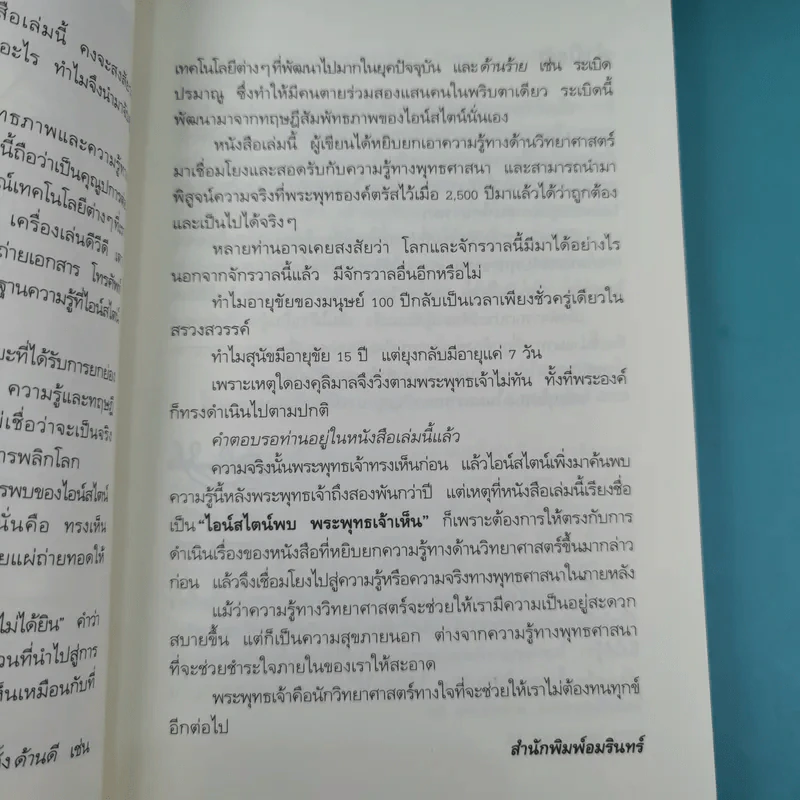 สือเล่มนี้ คงจะสงสัย
อะไร ทำไมจึงนำมา
ทธภาพและความรู้ทาง
นี้ถือว่าเป็นคุณูปการ
ณ์เทคโนโลยีต่างๆที่
เครื่องเล่นดีวีดี
ถ่ายเอกสาร โทรศัพท์
ฐานความรู้ที่ไอน์สไตน์
ะที่ได้รับการยกย่อง
ความรู้และทฤษฎี
ม่เชื่อว่าจะเป็นจริง
ารพลิกโลก
ารพบของไอน์สไตน์
นั่นคือ ทรงเห็น
ยแผ่ถ่ายทอดให้
ไม่ได้ยิน" คำว่า
วนที่นำไปสู่การ
ห็นเหมือนกับที่
ั้งด้านดี เช่น
เทคโนโลยีต่างๆที่พัฒนาไปมากในยุคปัจจุบัน และด้านร้าย เช่น ระเบิด
ปรมาณู ซึ่งทำให้มีคนตายร่วมสองแสนคนในพริบตาเดียว ระเบิดนี้
พัฒนามาจากทฤษฎีสัมพัทธภาพของไอน์สไตน์นั่นเอง
หนังสือเล่มนี้ ผู้เขียนได้หยิบยกเอาความรู้ทางด้านวิทยาศาสตร์
มาเชื่อมโยงและสอดรับกับความรู้ทางพุทธศาสนา และสามารถนำมา
พิสูจน์ความจริงที่พระพุทธองค์ตรัสไว้เมื่อ 2,500 ปีมาแล้วได้ว่าถูกต้อง
และเป็นไปได้จริงๆ
หลายท่านอาจเคยสงสัยว่า โลกและจักรวาลนี้มีมาได้อย่างไร
นอกจากจักรวาลนี้แล้ว มีจักรวาลอื่นอีกหรือไม่
ทำไมอายุขัยของมนุษย์ 100 ปีกลับเป็นเวลาเพียงชั่วครู่เดียวใน
สรวงสวรรค์
ทำไมสุนัขมีอายุขัย 15 ปี แต่ยุงกลับมีอายุแค่ 7 วัน
เพราะเหตุใดองคุลิมาลจึงวิ่งตามพระพุทธเจ้าไม่ทัน ทั้งที่พระองค์
ก็ทรงดำเนินไปตามปกติ
คำตอบรอท่านอยู่ในหนังสือเล่มนี้แล้ว
ความจริงนั้นพระพุทธเจ้าทรงเห็นก่อน แล้วไอน์สไตน์เพิ่งมาค้นพบ
ความรู้นี้หลังพระพุทธเจ้าถึงสองพันกว่าปี แต่เหตุที่หนังสือเล่มนี้เรียงชื่อ
เป็น "ไอน์สไตน์พบ พระพุทธเจ้าเห็น" ก็เพราะต้องการให้ตรงกับการ
ดำเนินเรื่องของหนังสือที่หยิบยกความรู้ทางด้านวิทยาศาสตร์ขึ้นมากล่าว
ก่อน แล้วจึงเชื่อมโยงไปสู่ความรู้หรือความจริงทางพุทธศาสนาในภายหลัง
แม้ว่าความรู้ทางวิทยาศาสตร์จะช่วยให้เรามีความเป็นอยู่สะดวก
สบายขึ้น แต่ก็เป็นความสุขภายนอก ต่างจากความรู้ทางพุทธศาสนา
ที่จะช่วยชำระใจภายในของเราให้สะอาด
พระพุทธเจ้าคือนักวิทยาศาสตร์ทางใจที่จะช่วยให้เราไม่ต้องทนทุกข์
อีกต่อไป
สำนักพิมพ์อมรินทร์